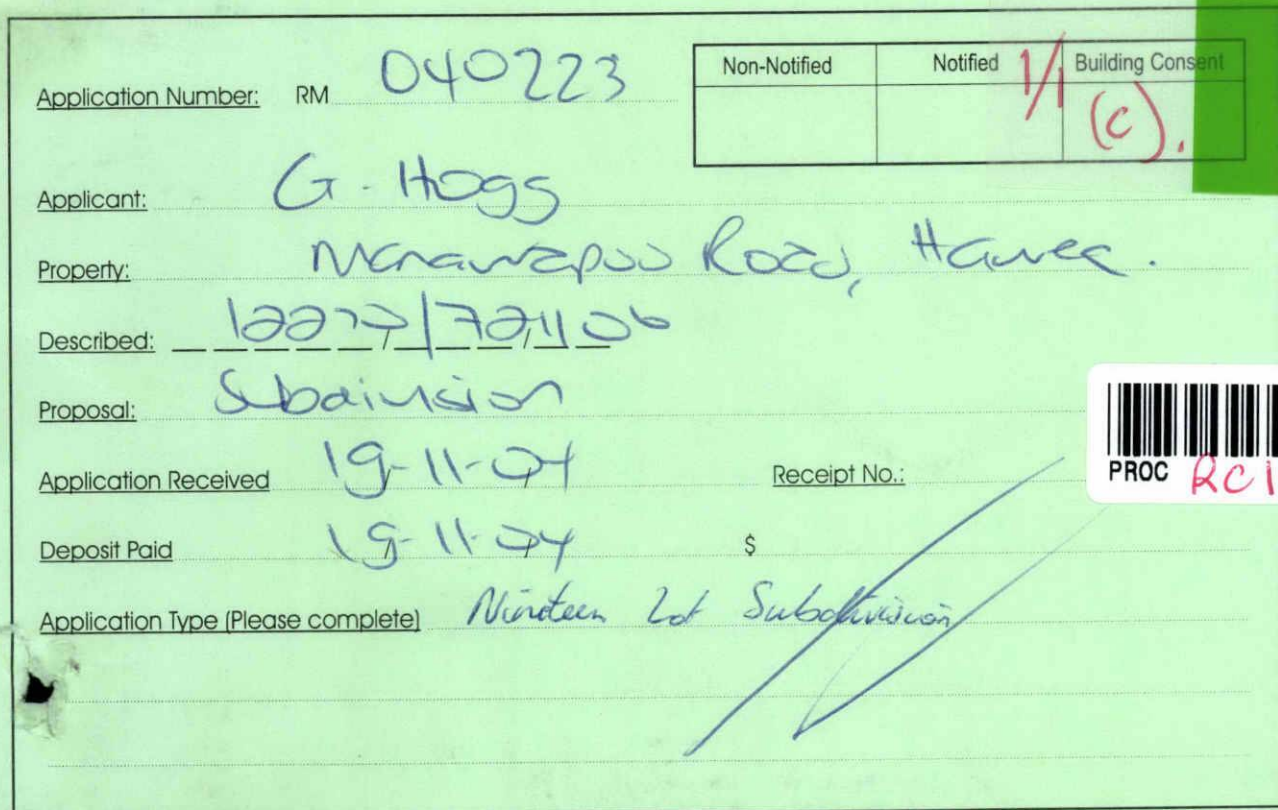 Application Number: RM 040223
Non-Notified Notified Building Consent
1/1 (c).
Applicant: G. Hogg
Property: Manawapou Road, Hawera.
Described:
Proposal: Subdivision
Application Received 19-11-04 Receipt No.:
PROC RC1
Deposit Paid 19-11-04 $
Application Type (Please complete) Nineteen Lot Subdivision